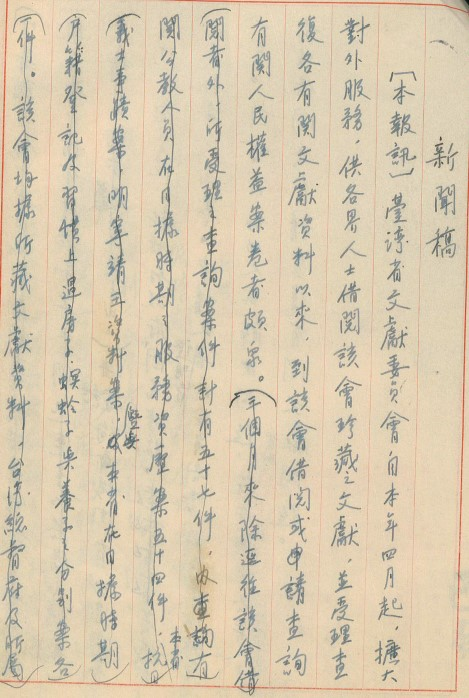 新聞稿
［本報訊］臺灣省文獻委員會自本年四月起，擴大
對外服務，供各界人士借閱該會珍藏之文獻，並受理查
復各有關文獻資料以來，到該會借閱或申請查詢
有關人民權益案卷者頗衆。（三個月來除逕往該會借
閱者外，所受理之查詢案件計有五十七件，內查詢有
關公教人員在日據時期之服務資歷案五十四件，抗日
義士事蹟案，申請立資料案，以本省在日據時期
本省
戶籍登記及習慣上過房子、螟蛉子與養子之分別案各
一件。該會均據所藏文獻資料，台灣總督府及所屬